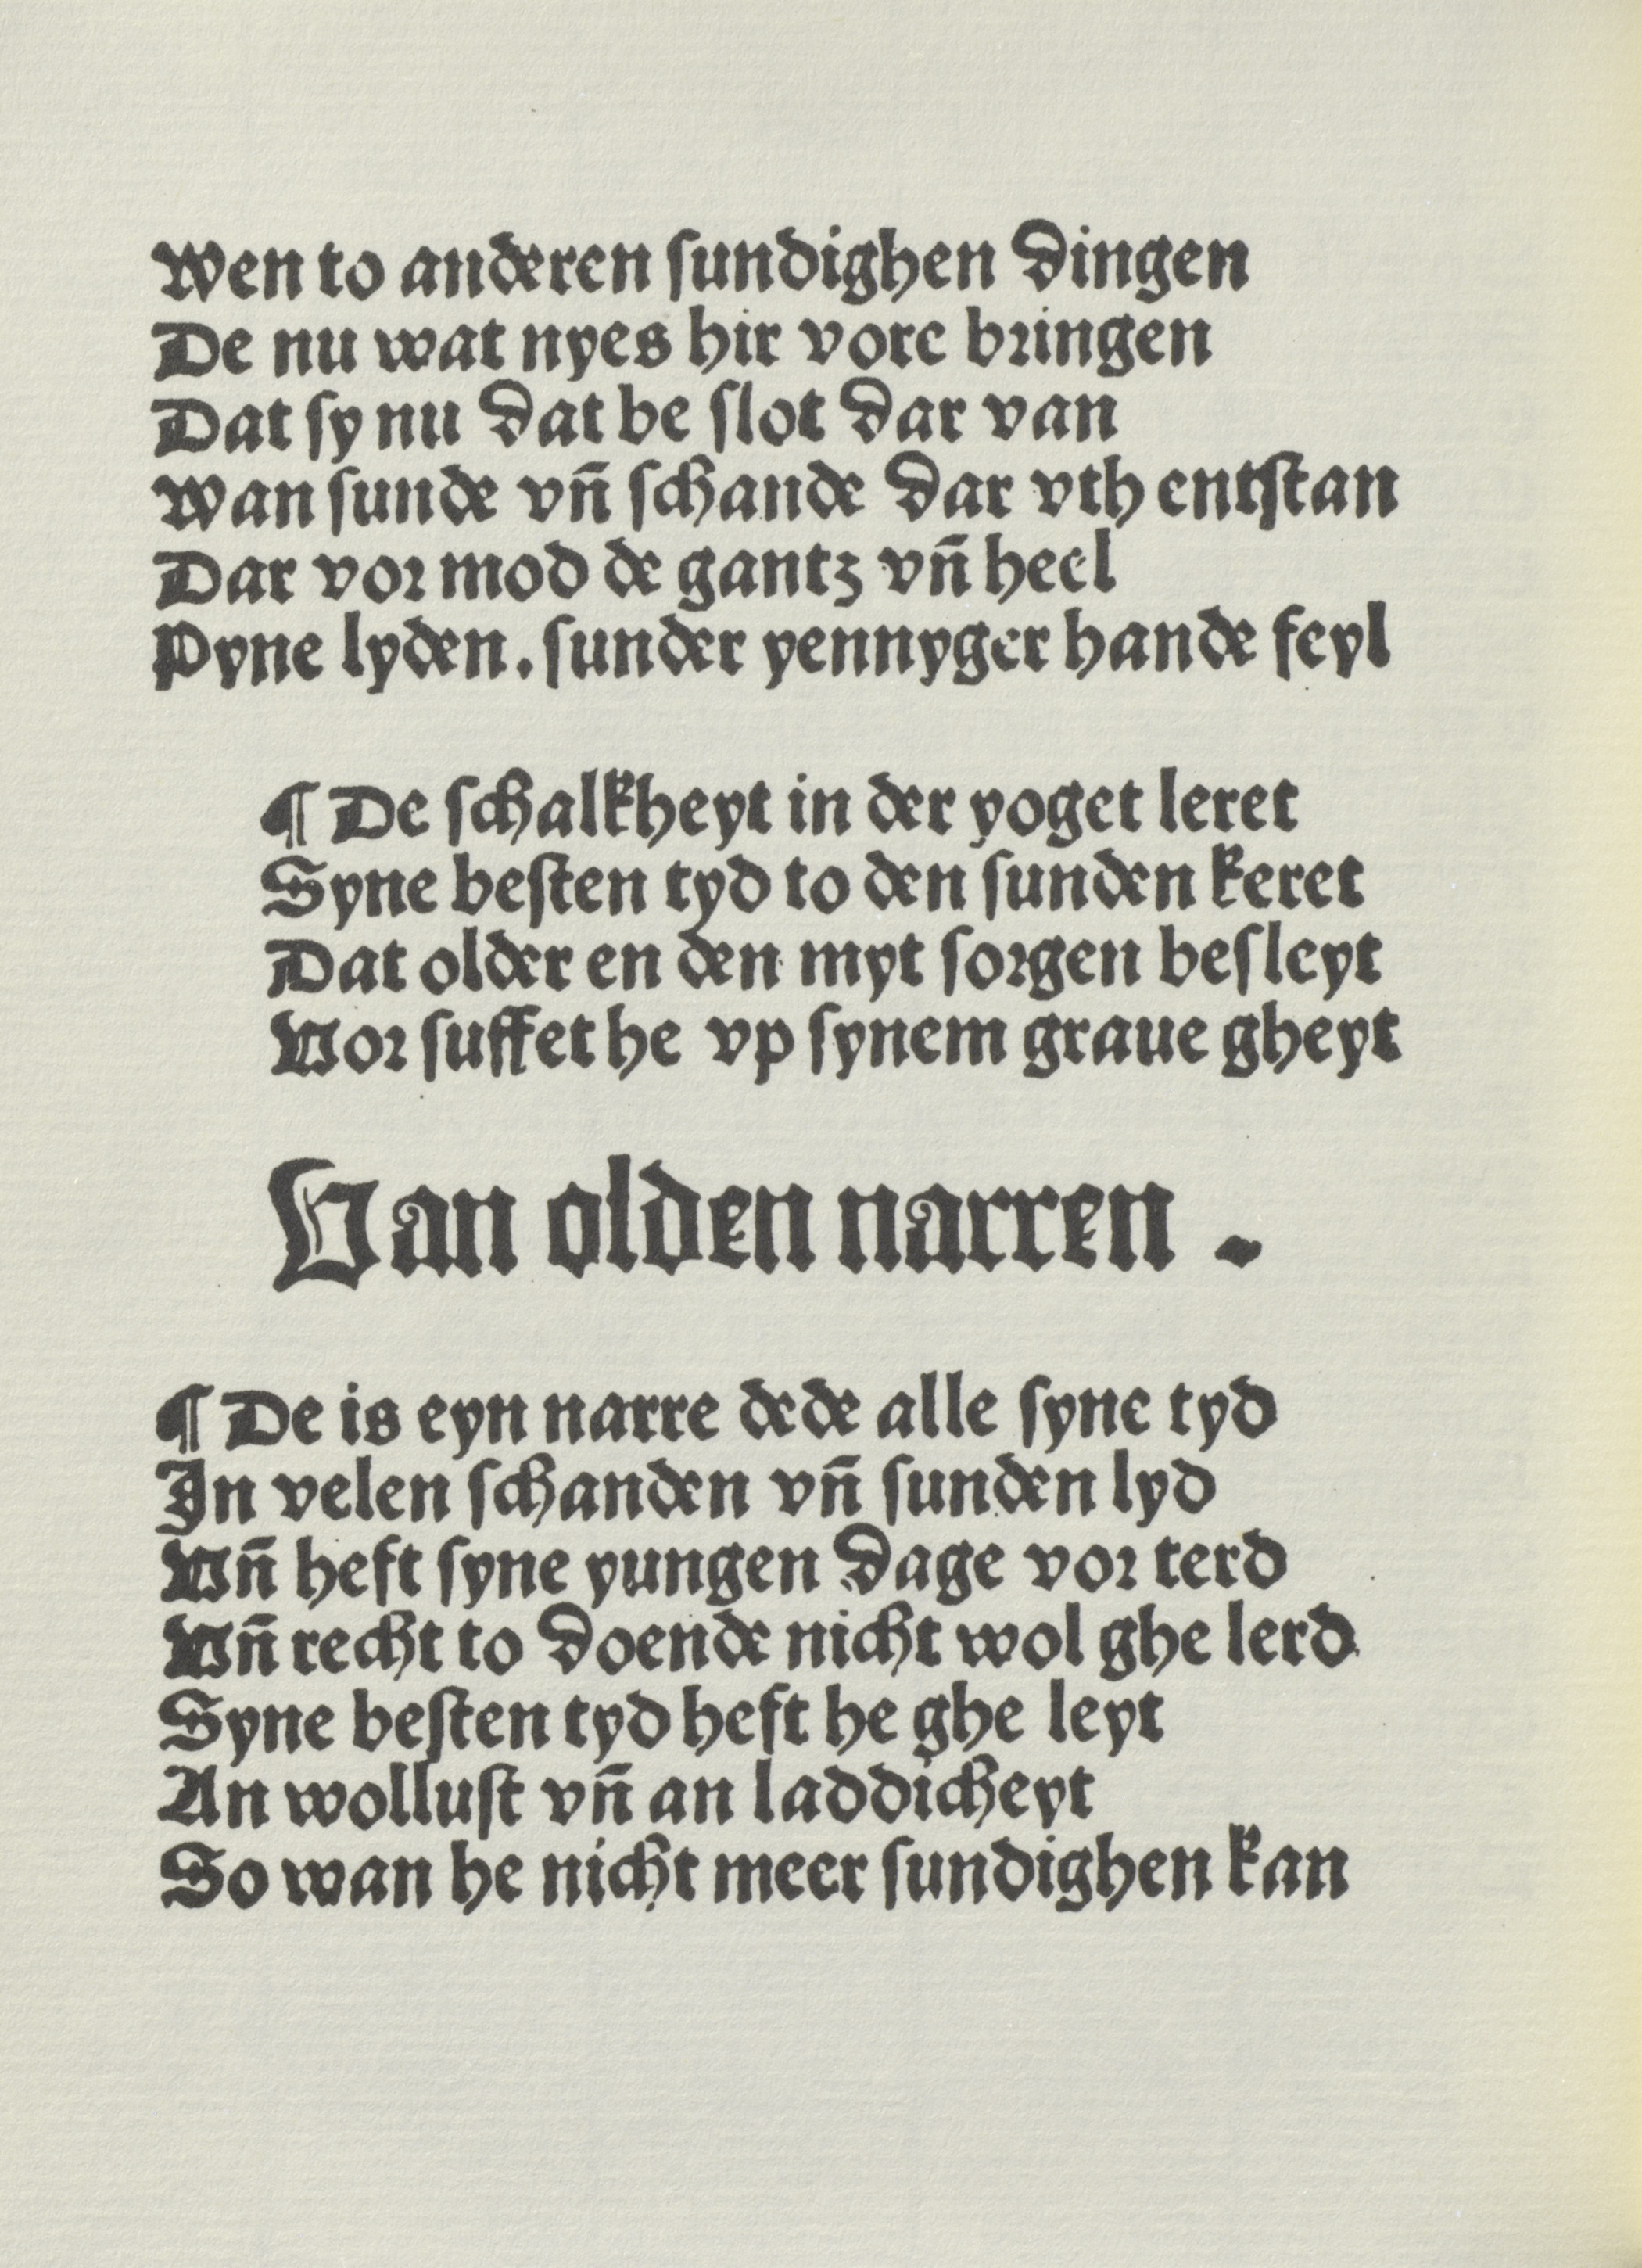 Wen to anderen sundighen dingen
De nu wat nyes hir vore bringen
Dat sy nu dat be slot dar van
Wan sunde vn̄ schande dar vth entstan
Dar vor mod de gantz vn̄ heel
Pyne lyden. sunder yennyger hande feyl
¶ De schalkheyt in der yoget leret
Syne besten tyd to den sunden keret
Dat older en den myt sorgen besleyt
Vor suffet he vp synem graue gheyt
Van olden narren.
¶ De is eyn narre dede alle syne tyd
In velen schanden vn̄ sunden lyd
Vn̄ heft syne yungen dage vor terd
Vn̄ recht to doende nicht wol ghe lerd
Syne besten tyd heft he ghe leyt
An wollust vn̄ an laddicheyt
So wan he nicht meer sundighen kan